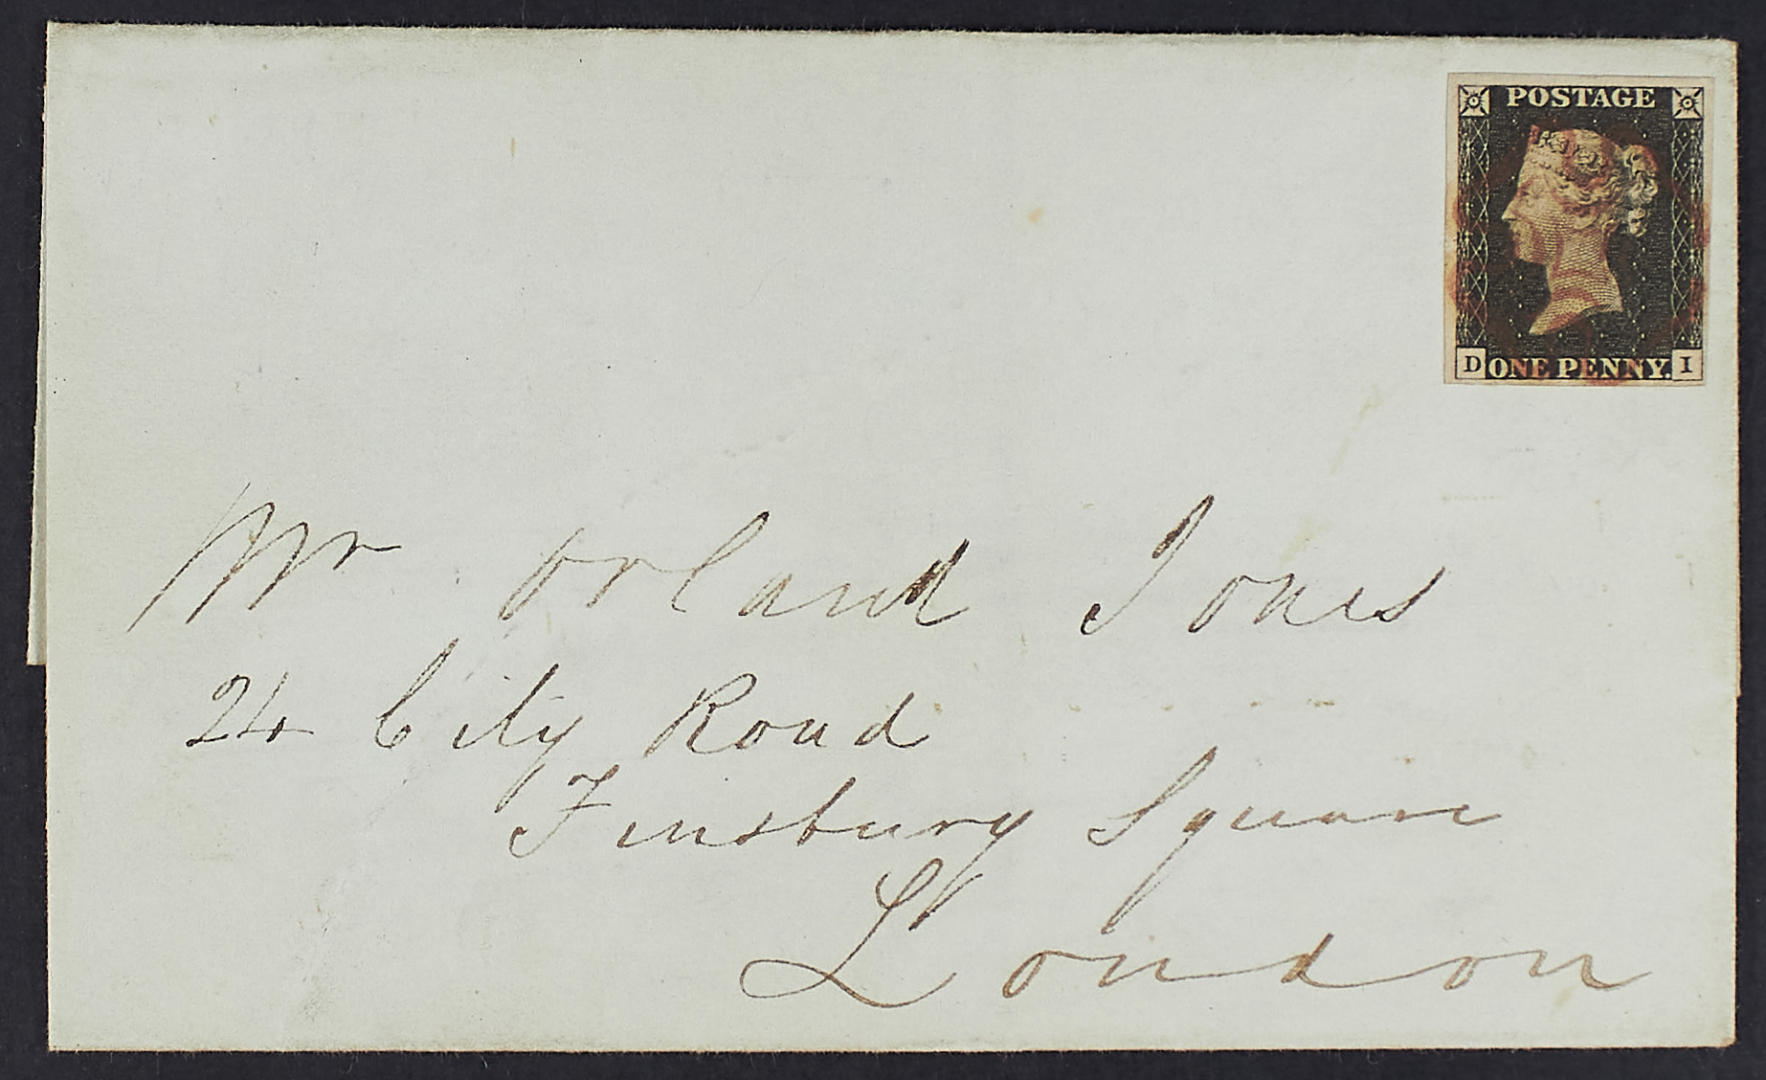 POSTAGE
D ONE PENNY. I
Mr Orland Jones
24 City Road
Finsbury Square
London